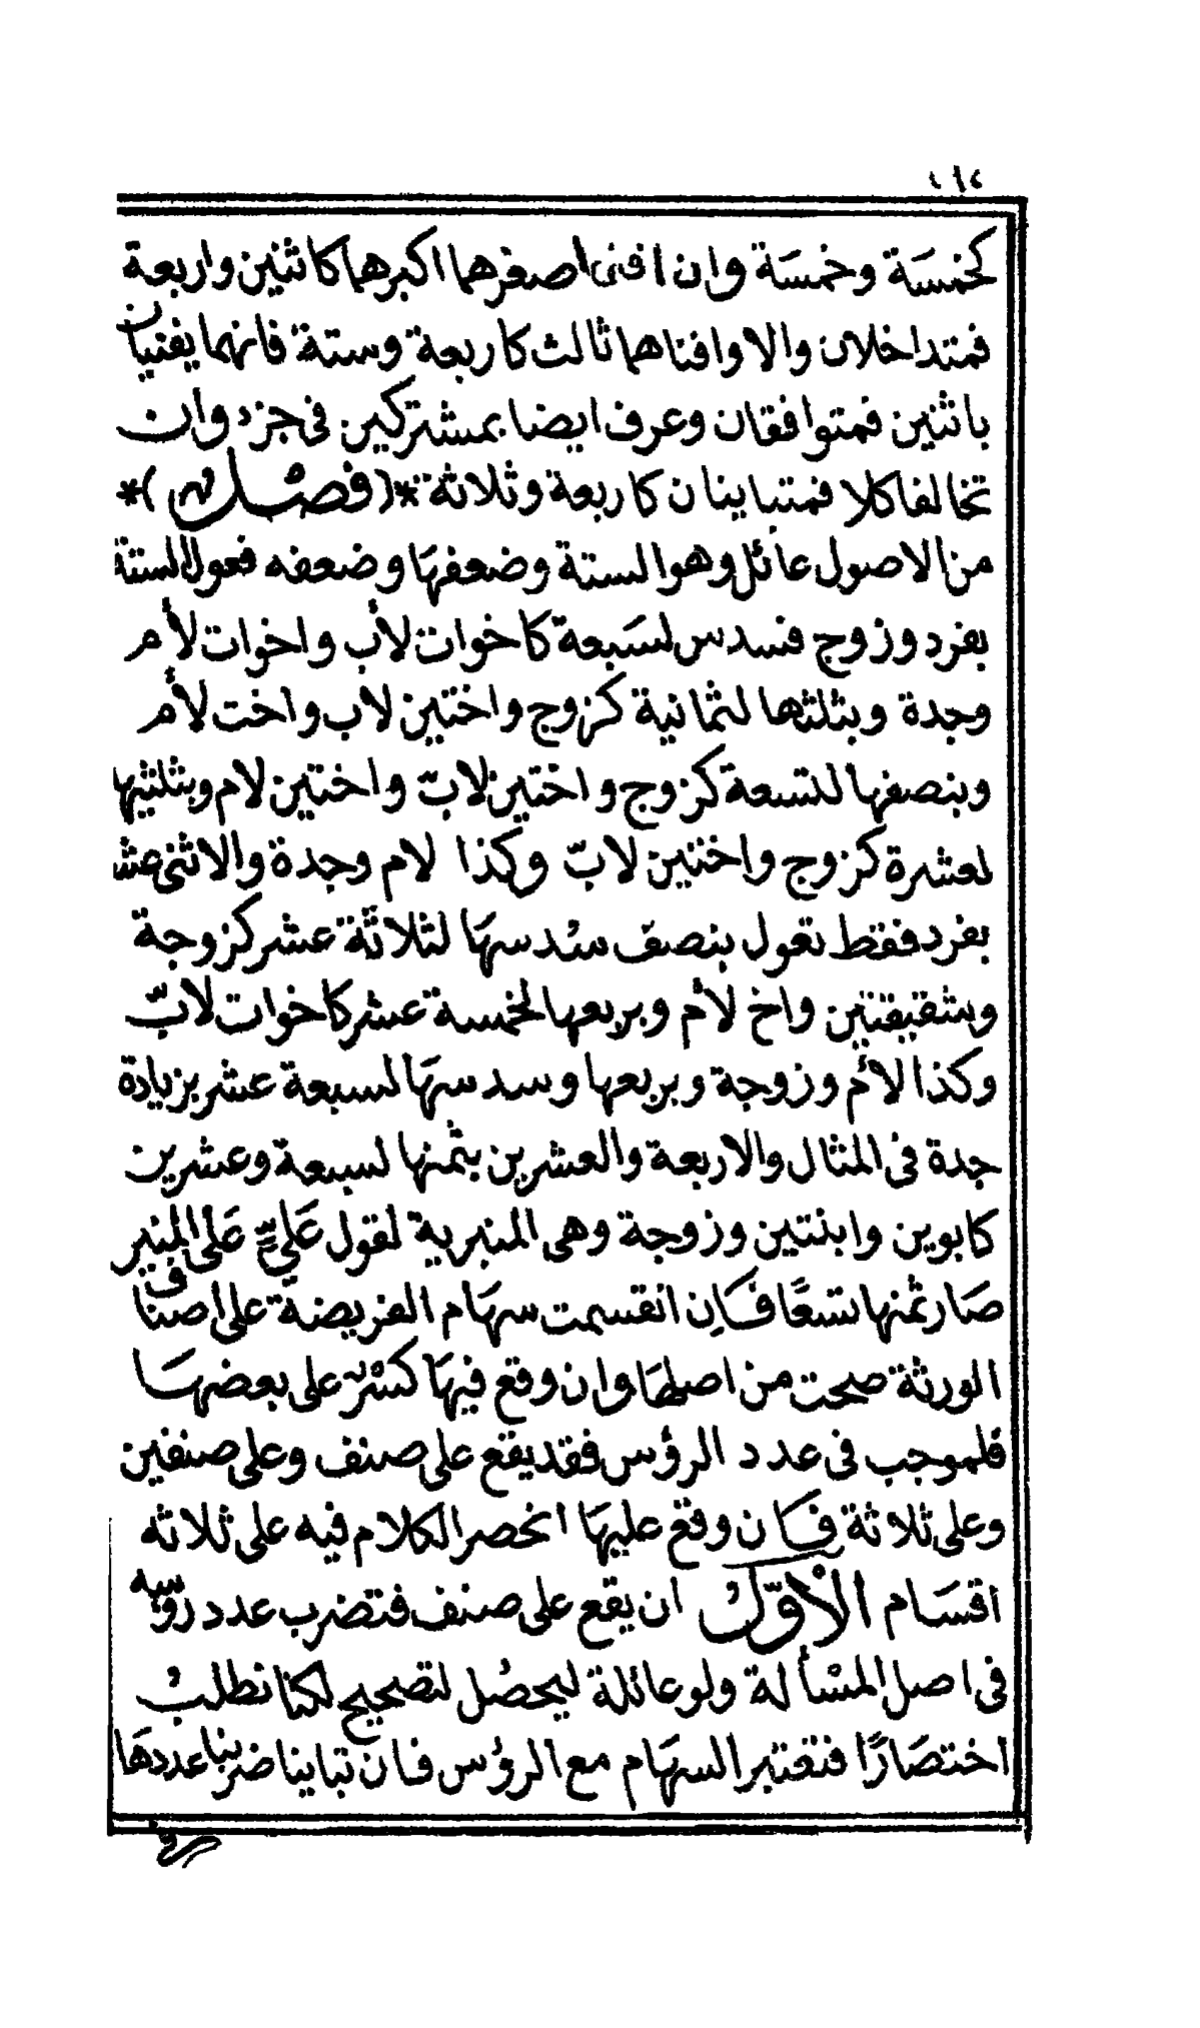 كخمسَة وخمسَة وان افنى اصغرهما اكبرهما كاثنين واربعة
فمتداخلان والا وافناهما ثالث كاربعة وستة فانهما يفنيان
باثنين فمتوافقان وعرف ايضا بمشتركين فى جزء وان
تخالفا كلا فمتباينان كاربعة وثلاثة *(فصل)*
من الاصول عائل وهو الستة وضعفهَا وضعفه فعول الستة
بفرد وزوج فسدس لسَبعة كاخوات لأب واخوات لأم
وجدة وبثلثها لثمانية كزوج واختين لاب واخت لأم
وبنصفها للتسعة كزوج واختين لابّ واختين لام وبثلثيها
لعشرة كزوج واختين لابّ وكذا لام وجدة والاثنى عشر
بفرد فقط تعول بنصف سدسهَا لثلاثَة عشر كزوجة
وشقيقتين واخ لأم وبربعها لخمسة عشر كاخوات لابّ
وكذا لأم وزوجة وبربعها وسدسهَا لسبعة عشر بزيادة
جدة فى المثال والاربعة والعشرين بثمنها لسبعة وعشرين
كابوين وابنتين وزوجة وهى المنبرية لقول عَليّ عَلى المنبر
صَار ثمنها تسعًا فَان انقسمت سهَام الفريضة على اصناف
الورثة صحت من اصلهَا وان وقع فيهَا كسْر على بعضهَا
فلموجب فى عدد الرؤس فقد يقع على صنف وعلى صنفين
وعلى ثلاثة فان وقع عليهَا انحصر الكلام فيه على ثلاثه
اقسَام الْاوّلُ ان يقع على صنف فتضرب عدد رؤسه
فى اصل المسْألة ولو عائلة ليحصُل لتصحيح لكنا نطلبُ
اختصَارًا فنعتبر السهَام مع الرؤس فان تباينا ضربنا عددهَا